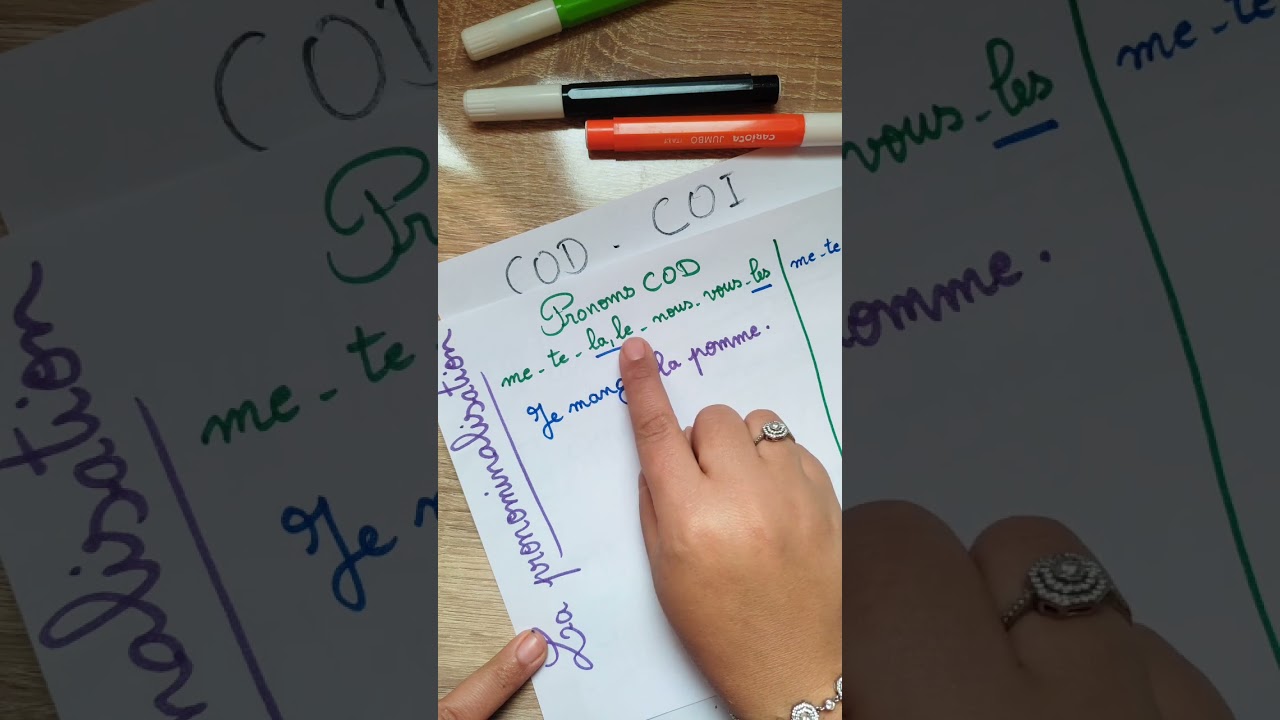 CARIOCA JUMBO ITALY
COD. COI
Pronoms COD
me-te-la,le-nous-vous-les
Je mang la pomme.
me-te
La pronominalisation